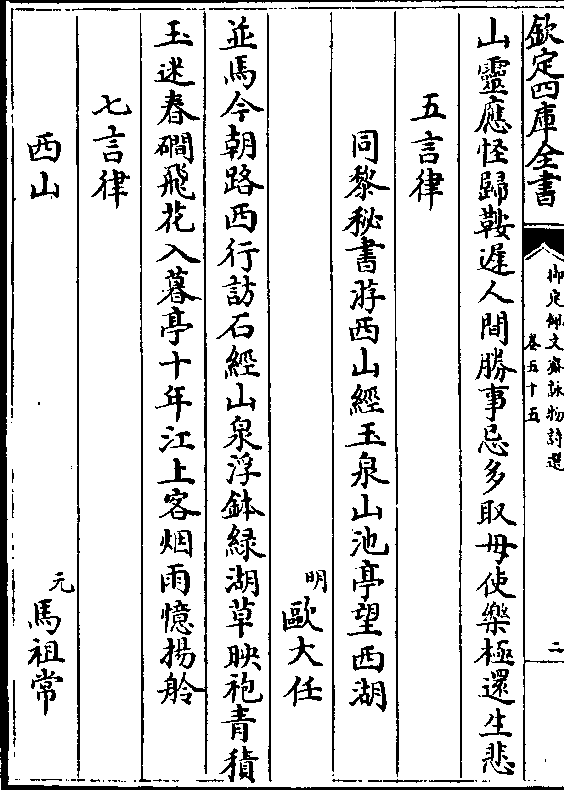 欽定四庫全書
御定佩文齋詠物詩選
卷五十五
二
山靈應怪歸鞍遲人間勝事忌多取毋使樂極還生悲
五言律
同黎秘書游西山經玉泉山池亭望西湖
明歐大任
並馬今朝路西行訪石經山泉浮鉢緑湖草映袍青積
玉迷春磵飛花入暮亭十年江上客烟雨憶揚舲
七言律
西山
元馬祖常